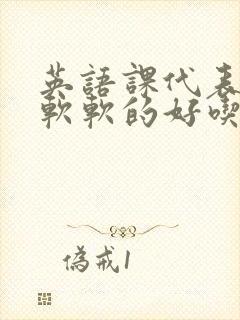 英語課代表
軟軟的好喫
偽戒1